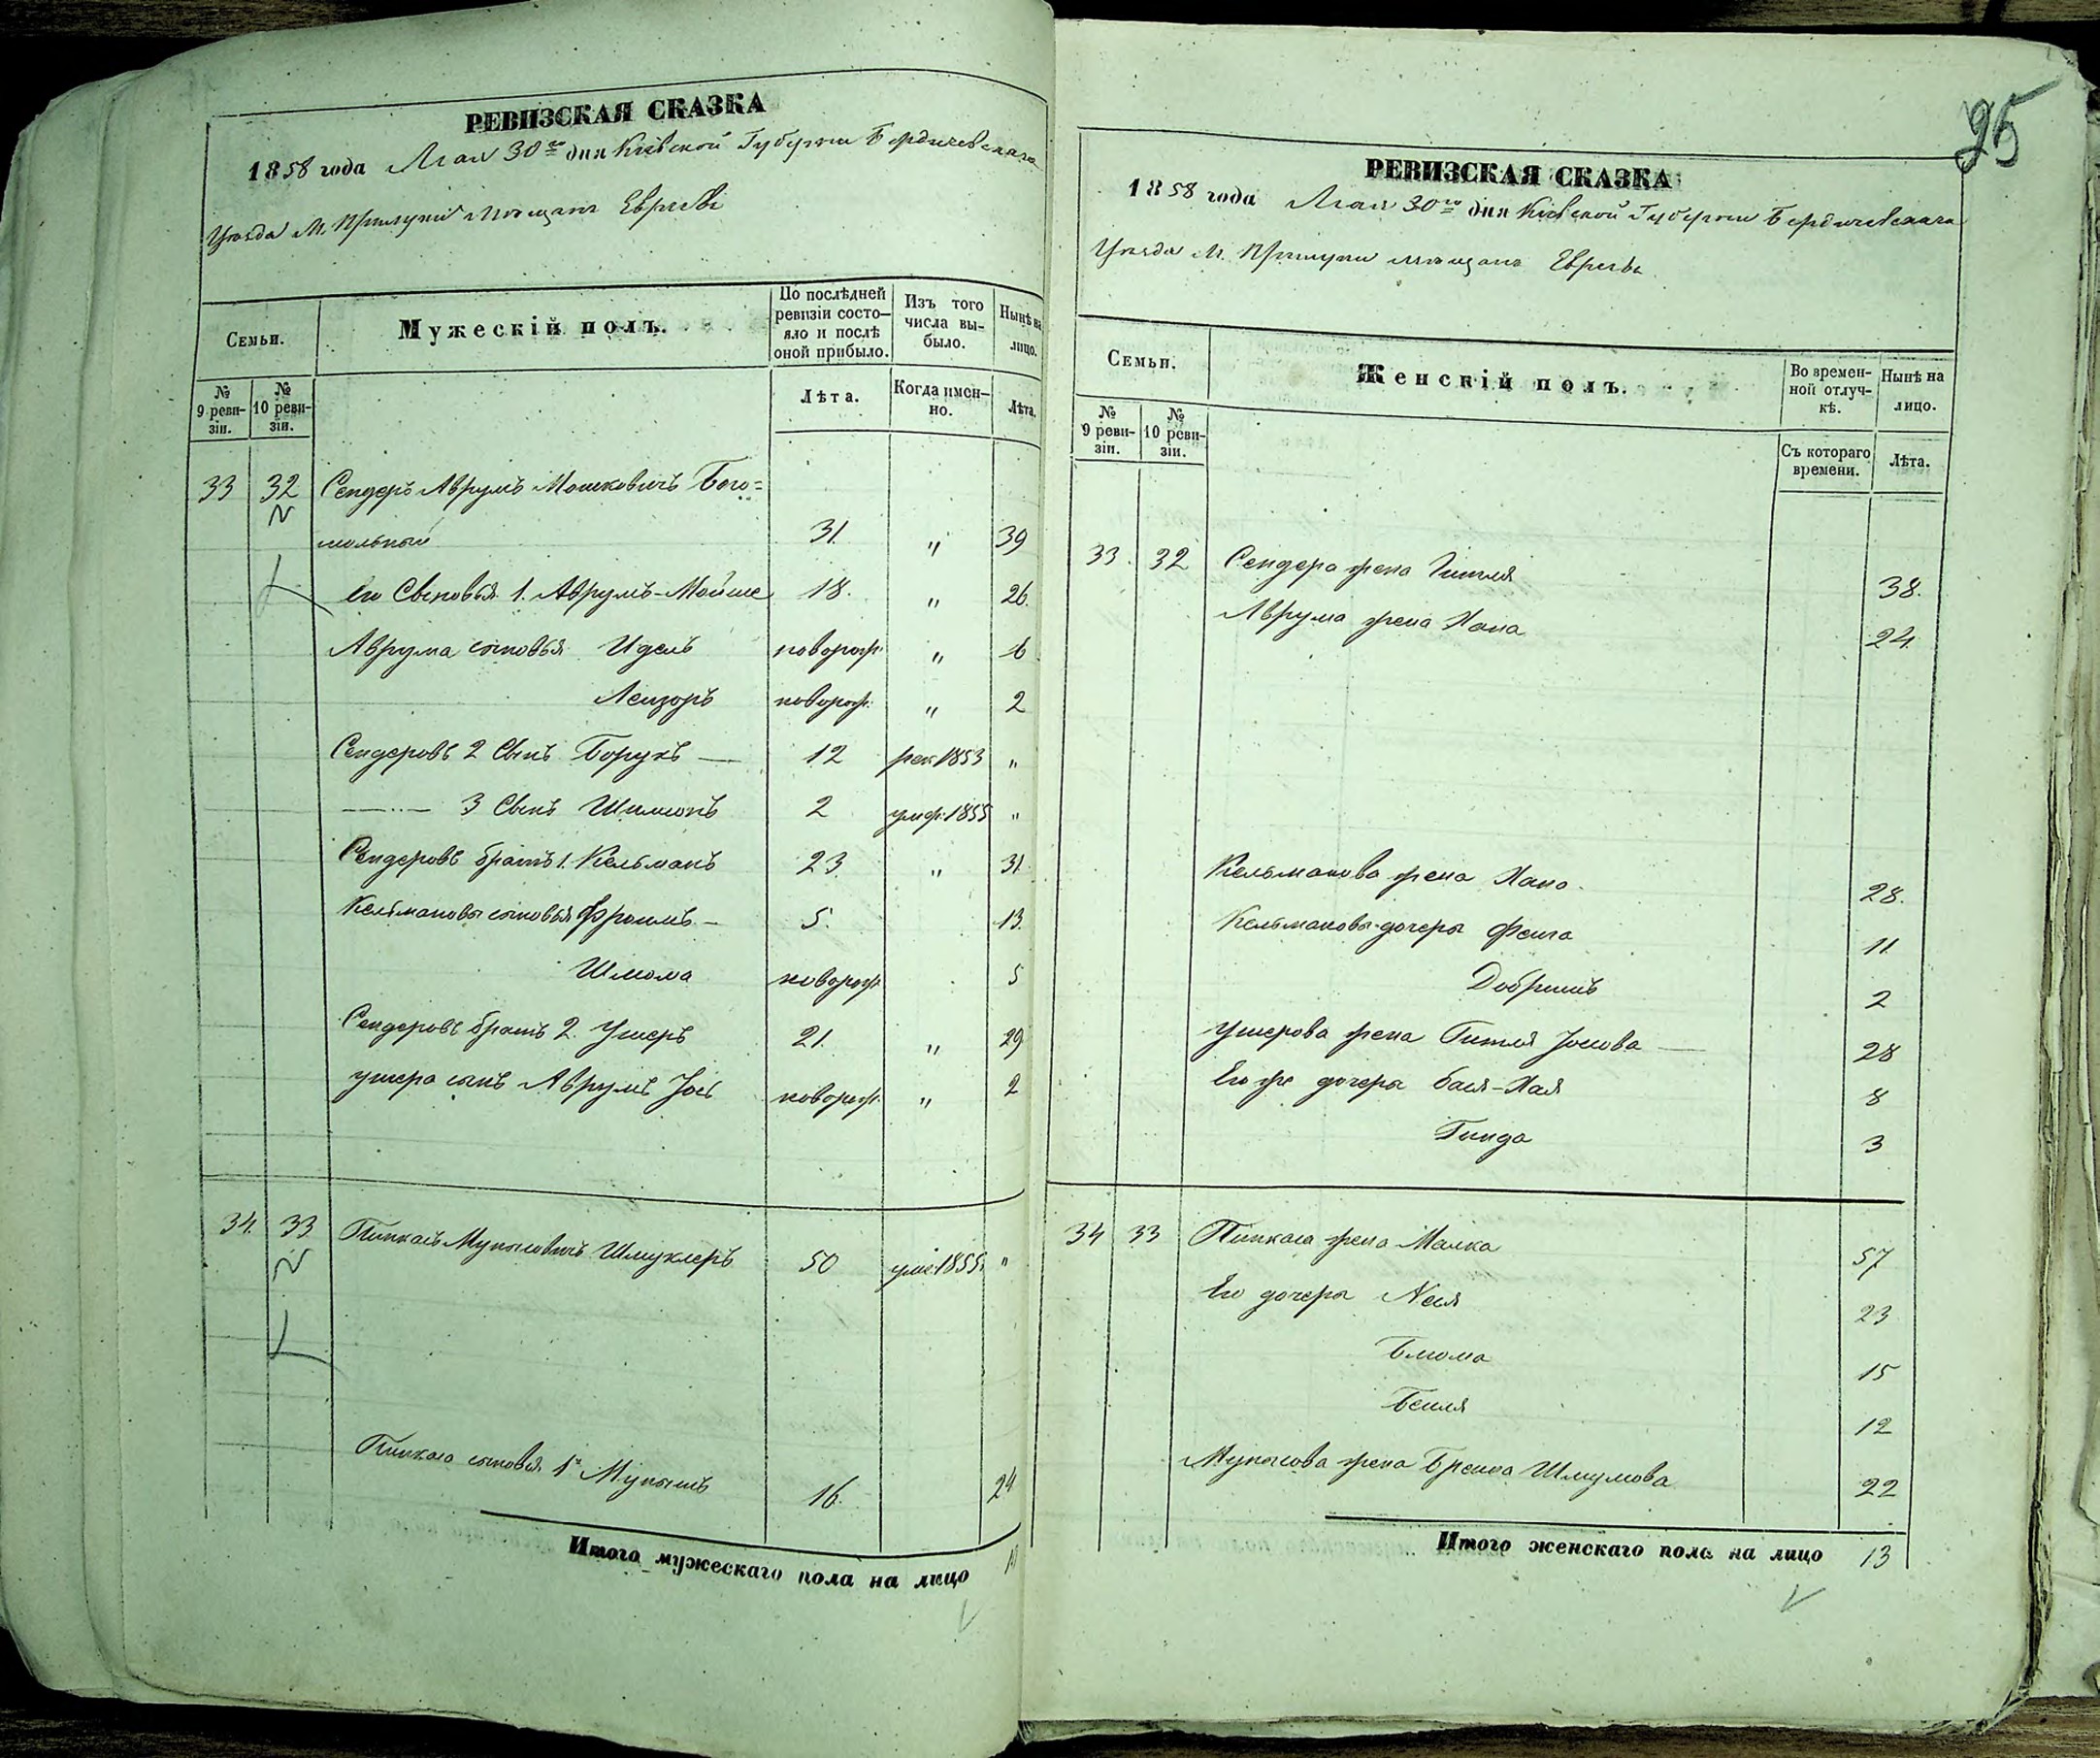 95
РЕВИЗСКАЯ СКАЗКА
1858 года Мая 30го дня Кіевской Губерніи Бердичевскаго
Уѣзда М. Прилуки мѣщанъ Евреевъ
Семьи.
Мужескій полъ.
По послѣдней ревизіи состояло и послѣ оной прибыло.
Изъ того числа выбыло.
Нынѣ на лицо.
№ 9 ревизіи.
№ 10 ревизіи.
Лѣта.
Когда именно.
Лѣта.
33 32 Сендеръ Аврумъ Мошковичъ Бого=
мольный 31. " 39
Его Сыновья 1. Аврумъ-Мойше 18. " 26.
Аврума сыновья Идель новорож. " 6
Лейзоръ новорож. " 2
Сендеровъ 2 Сынъ Борухъ — 12 рек. 1853 "
—"— 3 Сынъ Шимонъ 2 умр. 1855 "
Сендеровъ братъ 1. Кельманъ 23. " 31.
Кельмановы сыновья Фроимъ — 5. 13.
Шлома новорож. 5
Сендеровъ братъ 2. Ушеръ 21. " 29
Ушера сынъ Аврумъ Іось новорож. " 2
34. 33 Пинкасъ Мунысовичъ Шмуклеръ 50 уме. 1855. "
Пинкаса сыновья 1й Мунышъ 16. 24
Итого мужескаго пола на лицо
РЕВИЗСКАЯ СКАЗКА
1858 года Мая 30го дня Кіевской Губерніи Бердичевскаго
Уѣзда М. Прилуки мѣщанъ Евреевъ
Семьи.
Женскій полъ.
Во временной отлучкѣ.
Нынѣ на лицо.
№ 9 ревизіи.
№ 10 ревизіи.
Съ котораго времени.
Лѣта.
33. 32 Сендера жена Гитля 38.
Аврума жена Хана 24.
Кельманова жена Хана. 28.
Кельмановы дочери Фейга 11.
Добришъ 2
Ушерова жена Гитля Іосова — 28
Его же дочери Бася-Хая 8
Гинда 3
34 33 Пинкаса жена Малка 57
Его дочери Неся 23
Блюма 15
Бейля 12
Мунысова жена Брейна Шмулова 22
Итого женскаго пола на лицо 13